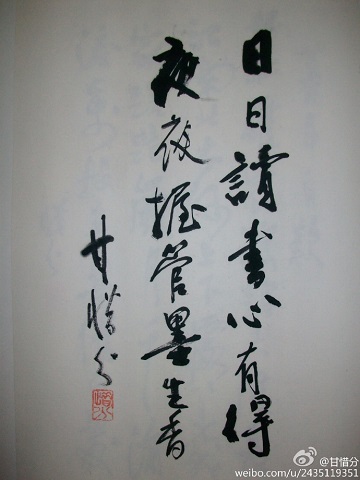 日日讀書心有得
夜夜握管墨生香
甘惜分
惜分
@甘惜分
weibo.com/u/2435119351